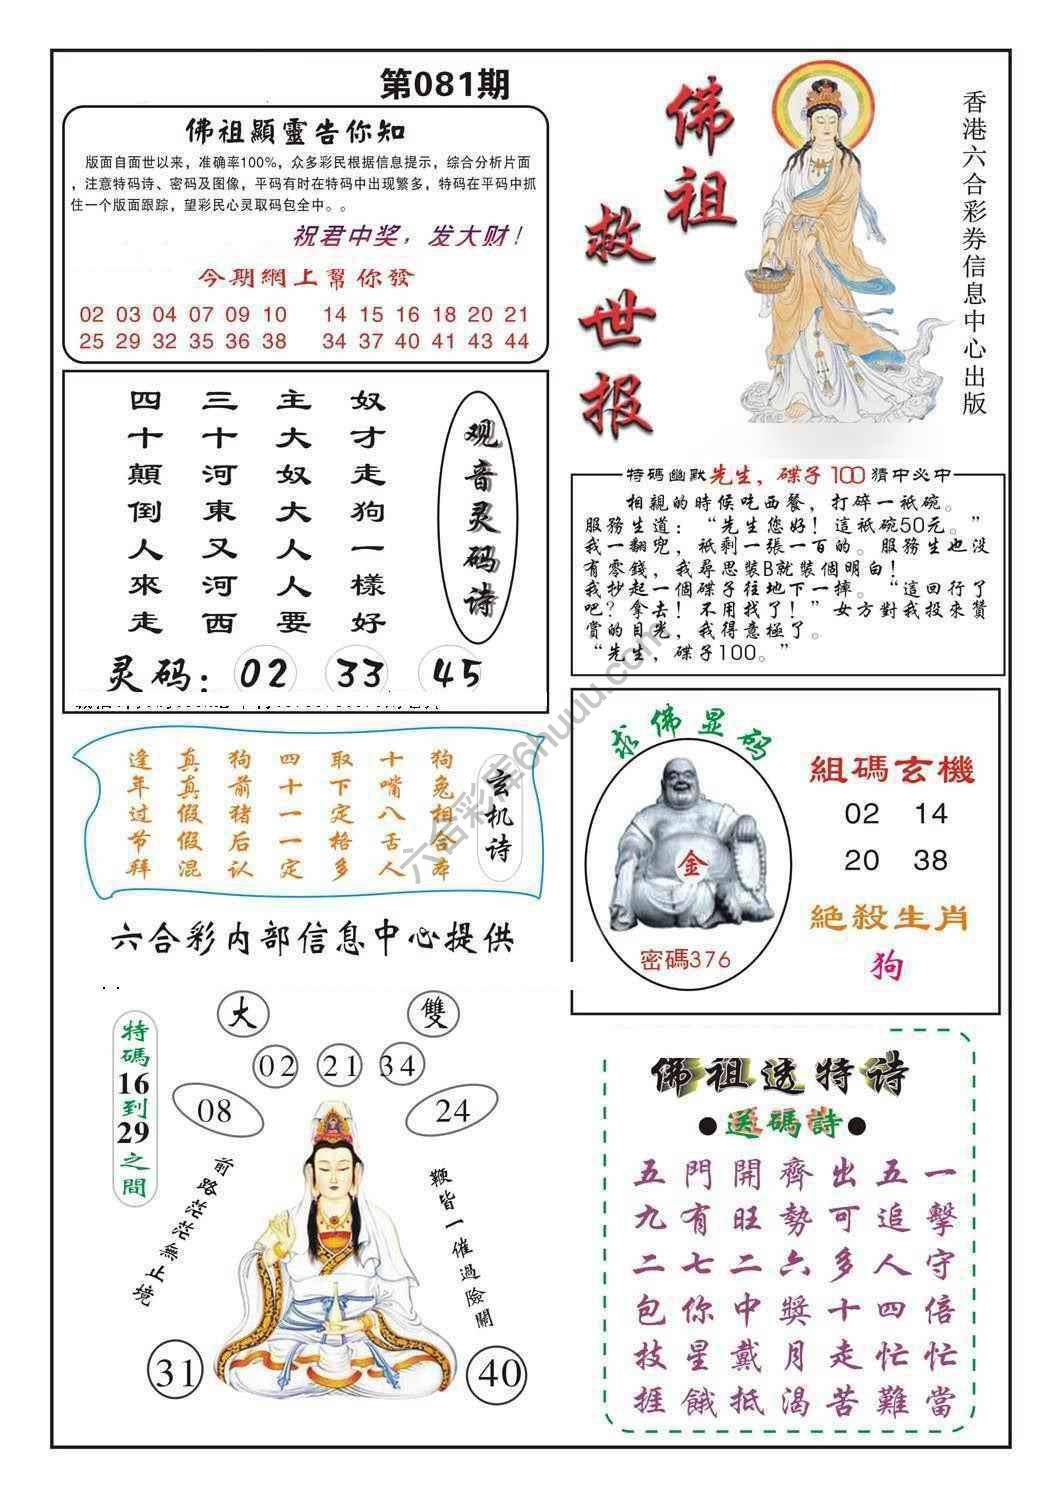 第081期
佛祖顯靈告你知
版面自面世以来，准确率100%，众多彩民根据信息提示，综合分析片面
，注意特码诗、密码及图像，平码有时在特码中出现繁多，特码在平码中抓
住一个版面跟踪，望彩民心灵取码包全中。。
祝君中奖，发大财！
今期網上幫你發
02 03 04 07 09 10 14 15 16 18 20 21
25 29 32 35 36 38 34 37 40 41 43 44
佛祖
救世报
香港六合彩券信息中心出版
观音灵码诗
奴才走狗一樣好
主大奴大人人要
三十河東又河西
四十顛倒人來走
灵码：02 33 45
特碼幽默先生，碟子100猜中必中
相親的時候吃西餐，打碎一祇碗。
服務生道：“先生您好！這祇碗50元。”
我一翻兜，祇剩一張一百的。服務生也没
有零錢，我尋思裝B就裝個明白！
我抄起一個碟子往地下一摔。“這回行了
吧？拿去！不用找了！”女方對我投來贊
賞的目光，我得意極了。
“先生，碟子100。”
玄机诗
狗兔相合本
十嘴八舌人
取下定格多
四十一一定
狗前猪后认
真真假假混
逢年过节拜
六合彩内部信息中心提供
求佛显码
金
密碼376
組碼玄機
02 14
20 38
絕殺生肖
狗
大 雙
02 21 34
08 24
特碼16到29之間
前路茫茫無止境
鞭皆一催過險關
31 40
佛祖透特诗
●送碼詩●
五門開齊出五一
九有旺勢可追擊
二七二六多人守
包你中獎十四倍
技星戴月走忙忙
捱餓抵渴苦難當
六合彩库6huuu.com